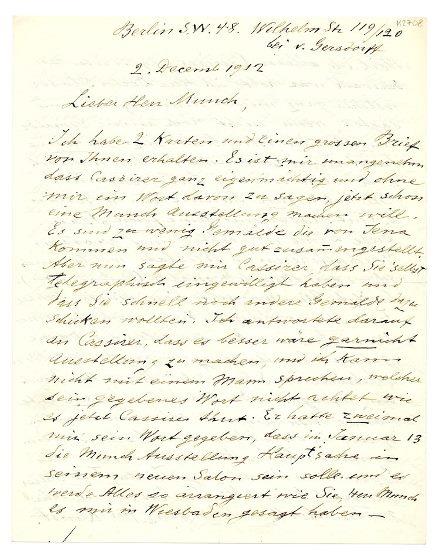 K2708
Berlin S.W. 48. Wilhelm Str 119/120
bei v. Gersdorff
2. Decemb 1912
Lieber Herr Munch,
Ich habe 2 Karten und einen grossen Brief
von Ihnen erhalten. Es ist mir unangenehm
dass Cassirer ganz eigenmächtig und ohne
mir ein Wort davon zu sagen, jetzt schon
eine Munch Ausstellung machen will.
Es sind zu wenig Gemälde die von Jena
kommen und nicht gut zusammgestellt.
Aber nun sagte mir Cassirer, dass Sie selbst
telegraphisch eingewilligt haben und
dass Sie schnell noch andere Gemälde dazu
schicken wollten. Ich antwortete darauf
den Cassirer, dass es besser wäre garnicht
Ausstellung zu machen, und ich kann
nicht mit einem Mann sprechen, welcher
sein gegebenes Wort nicht achtet wie
es jetzt Cassirer thut. Er hatte zweimal
mir sein Wort gegeben, dass im Januar 13
die Munch Ausstellung Hauptsache in
seinem neuen Salon sein solle und er
werde Alles so arrangiert wie Sie, Herr Munch
es mir in Wiesbaden gesagt haben —